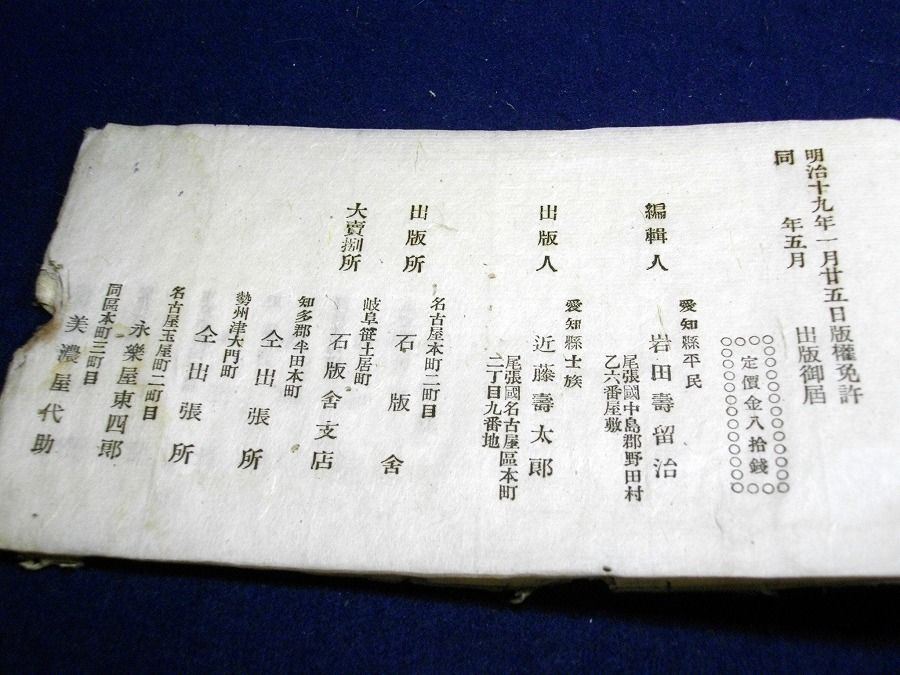 明治十九年一月廿五日版權免許
同　年五月　出版御屆
定價金八拾錢
編輯人
愛知縣平民
岩田壽留治
尾張國中島郡野田村
乙六番屋敷
出版人
愛知縣士族
近藤壽太郎
尾張國名古屋區本町
二丁目九番地
出版所
名古屋本町二町目
石版舍
大賣捌所
岐阜笹土居町
石版舍支店
知多郡半田本町
仝出張所
勢州津大門町
仝出張所
名古屋玉屋町二町目
永樂屋東四郎
同區本町三町目
美濃屋代助